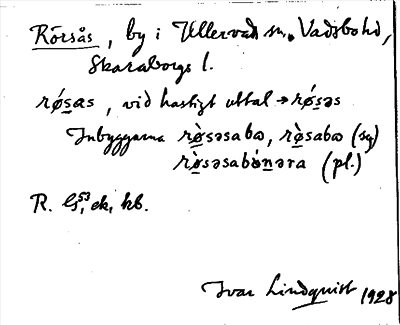 Rörsås, by i Ullervad sn, Vadsbo hd,
Skaraborgs l.
rǿs̲as, vid hastigt uttal → rǿs̲əs
Inbyggarna rø̀s̲əsabo, rø̀s̲abo (sg)
rø̀s̲əsabón̲əra (pl.)
R. G⁵³, ek, kb.
Ivar Lindquist 1928